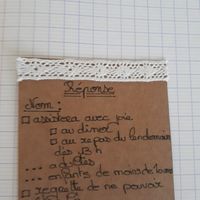 Réponse
Nom :
□ assistera avec joie
□ au diner
□ au repas du lendemain
dès 13 h
... adultes
... enfants de moins de 10 ans
□ regrette de ne pouvoir